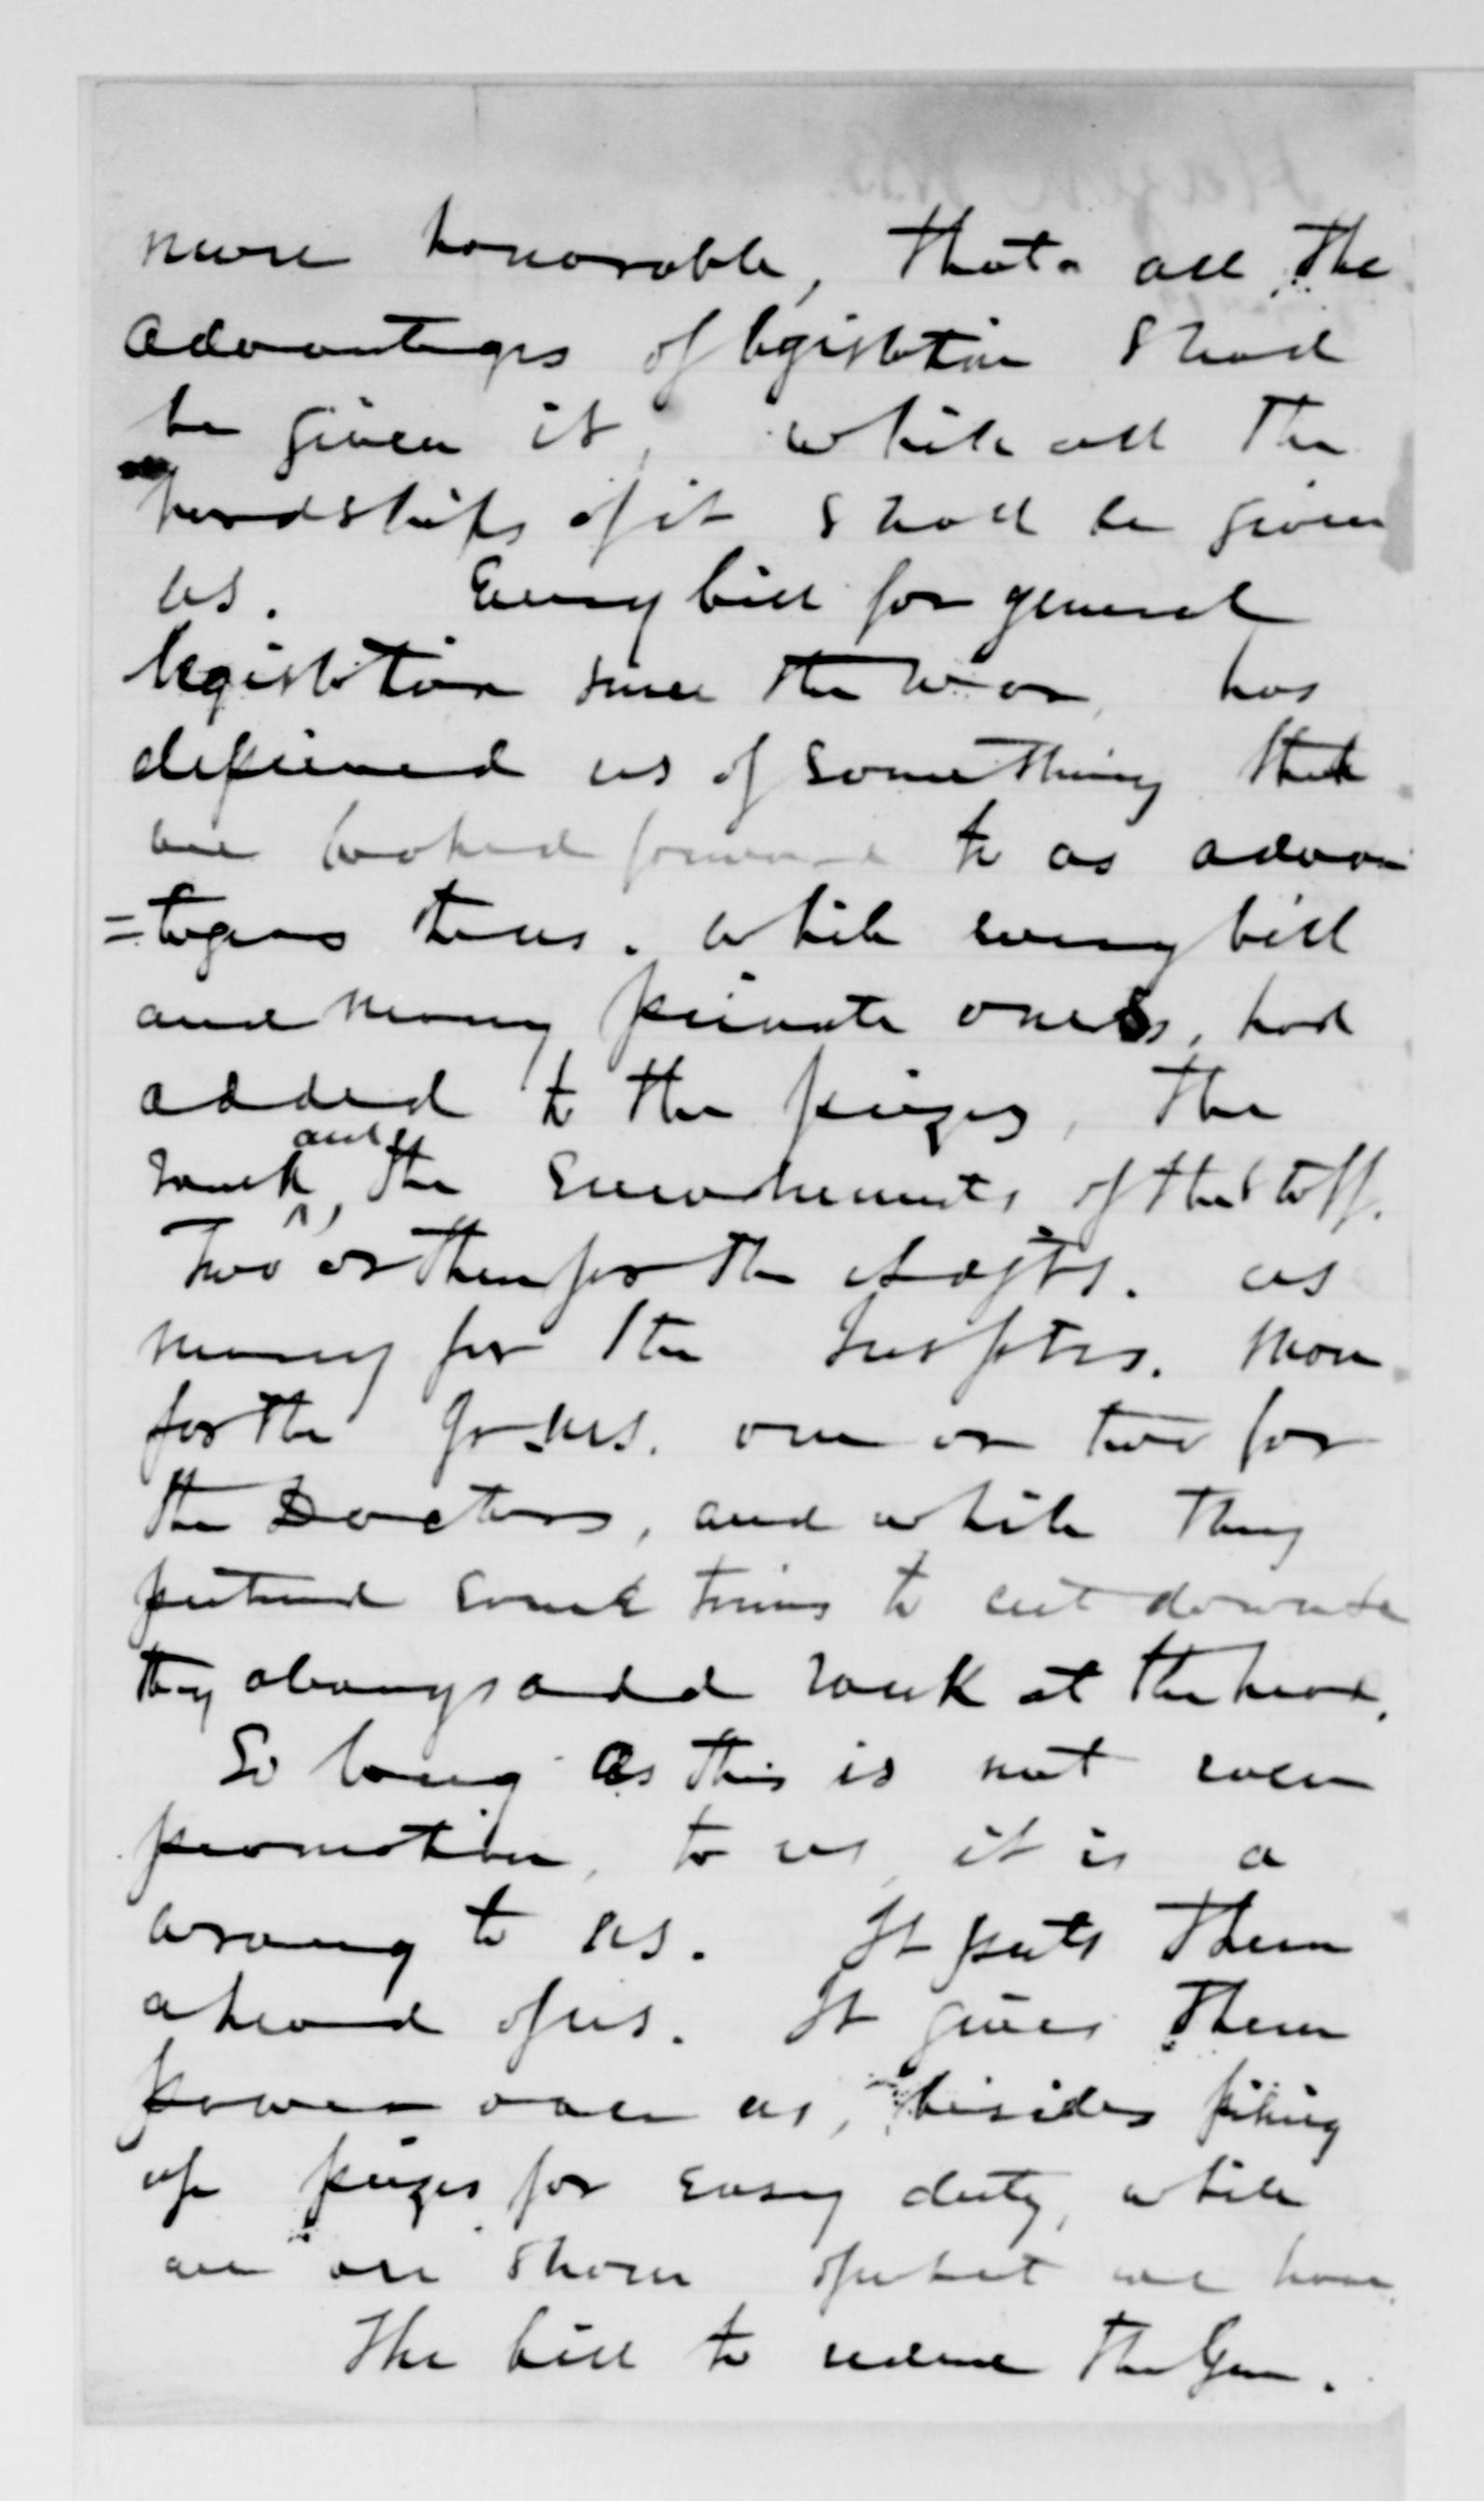 more honorable, that all the
advantages of legislation shall
be given it, while all the
hardships of it shall be given
us. Every bill for general
legislation since the war, has
deprived us of something that
we looked forward to as advan
=tageous to us. while every bill
and many private ones, had
added to the prizes, the
rank and the emoluments of the staff.
Two or three for the Adjts. as
many for the Insptrs. More
for the Qr Mrs. one or two for
the Doctors, and while they
pretend some times to cut down
they always add rank at the head.
So long as this is not even
promotion, to us it is a
wrong to us. It puts them
ahead of us. It gives them
power over us, besides piling
up prizes for easy duty, while
we are shorn of what we have.
The bill to reduce the Gen.